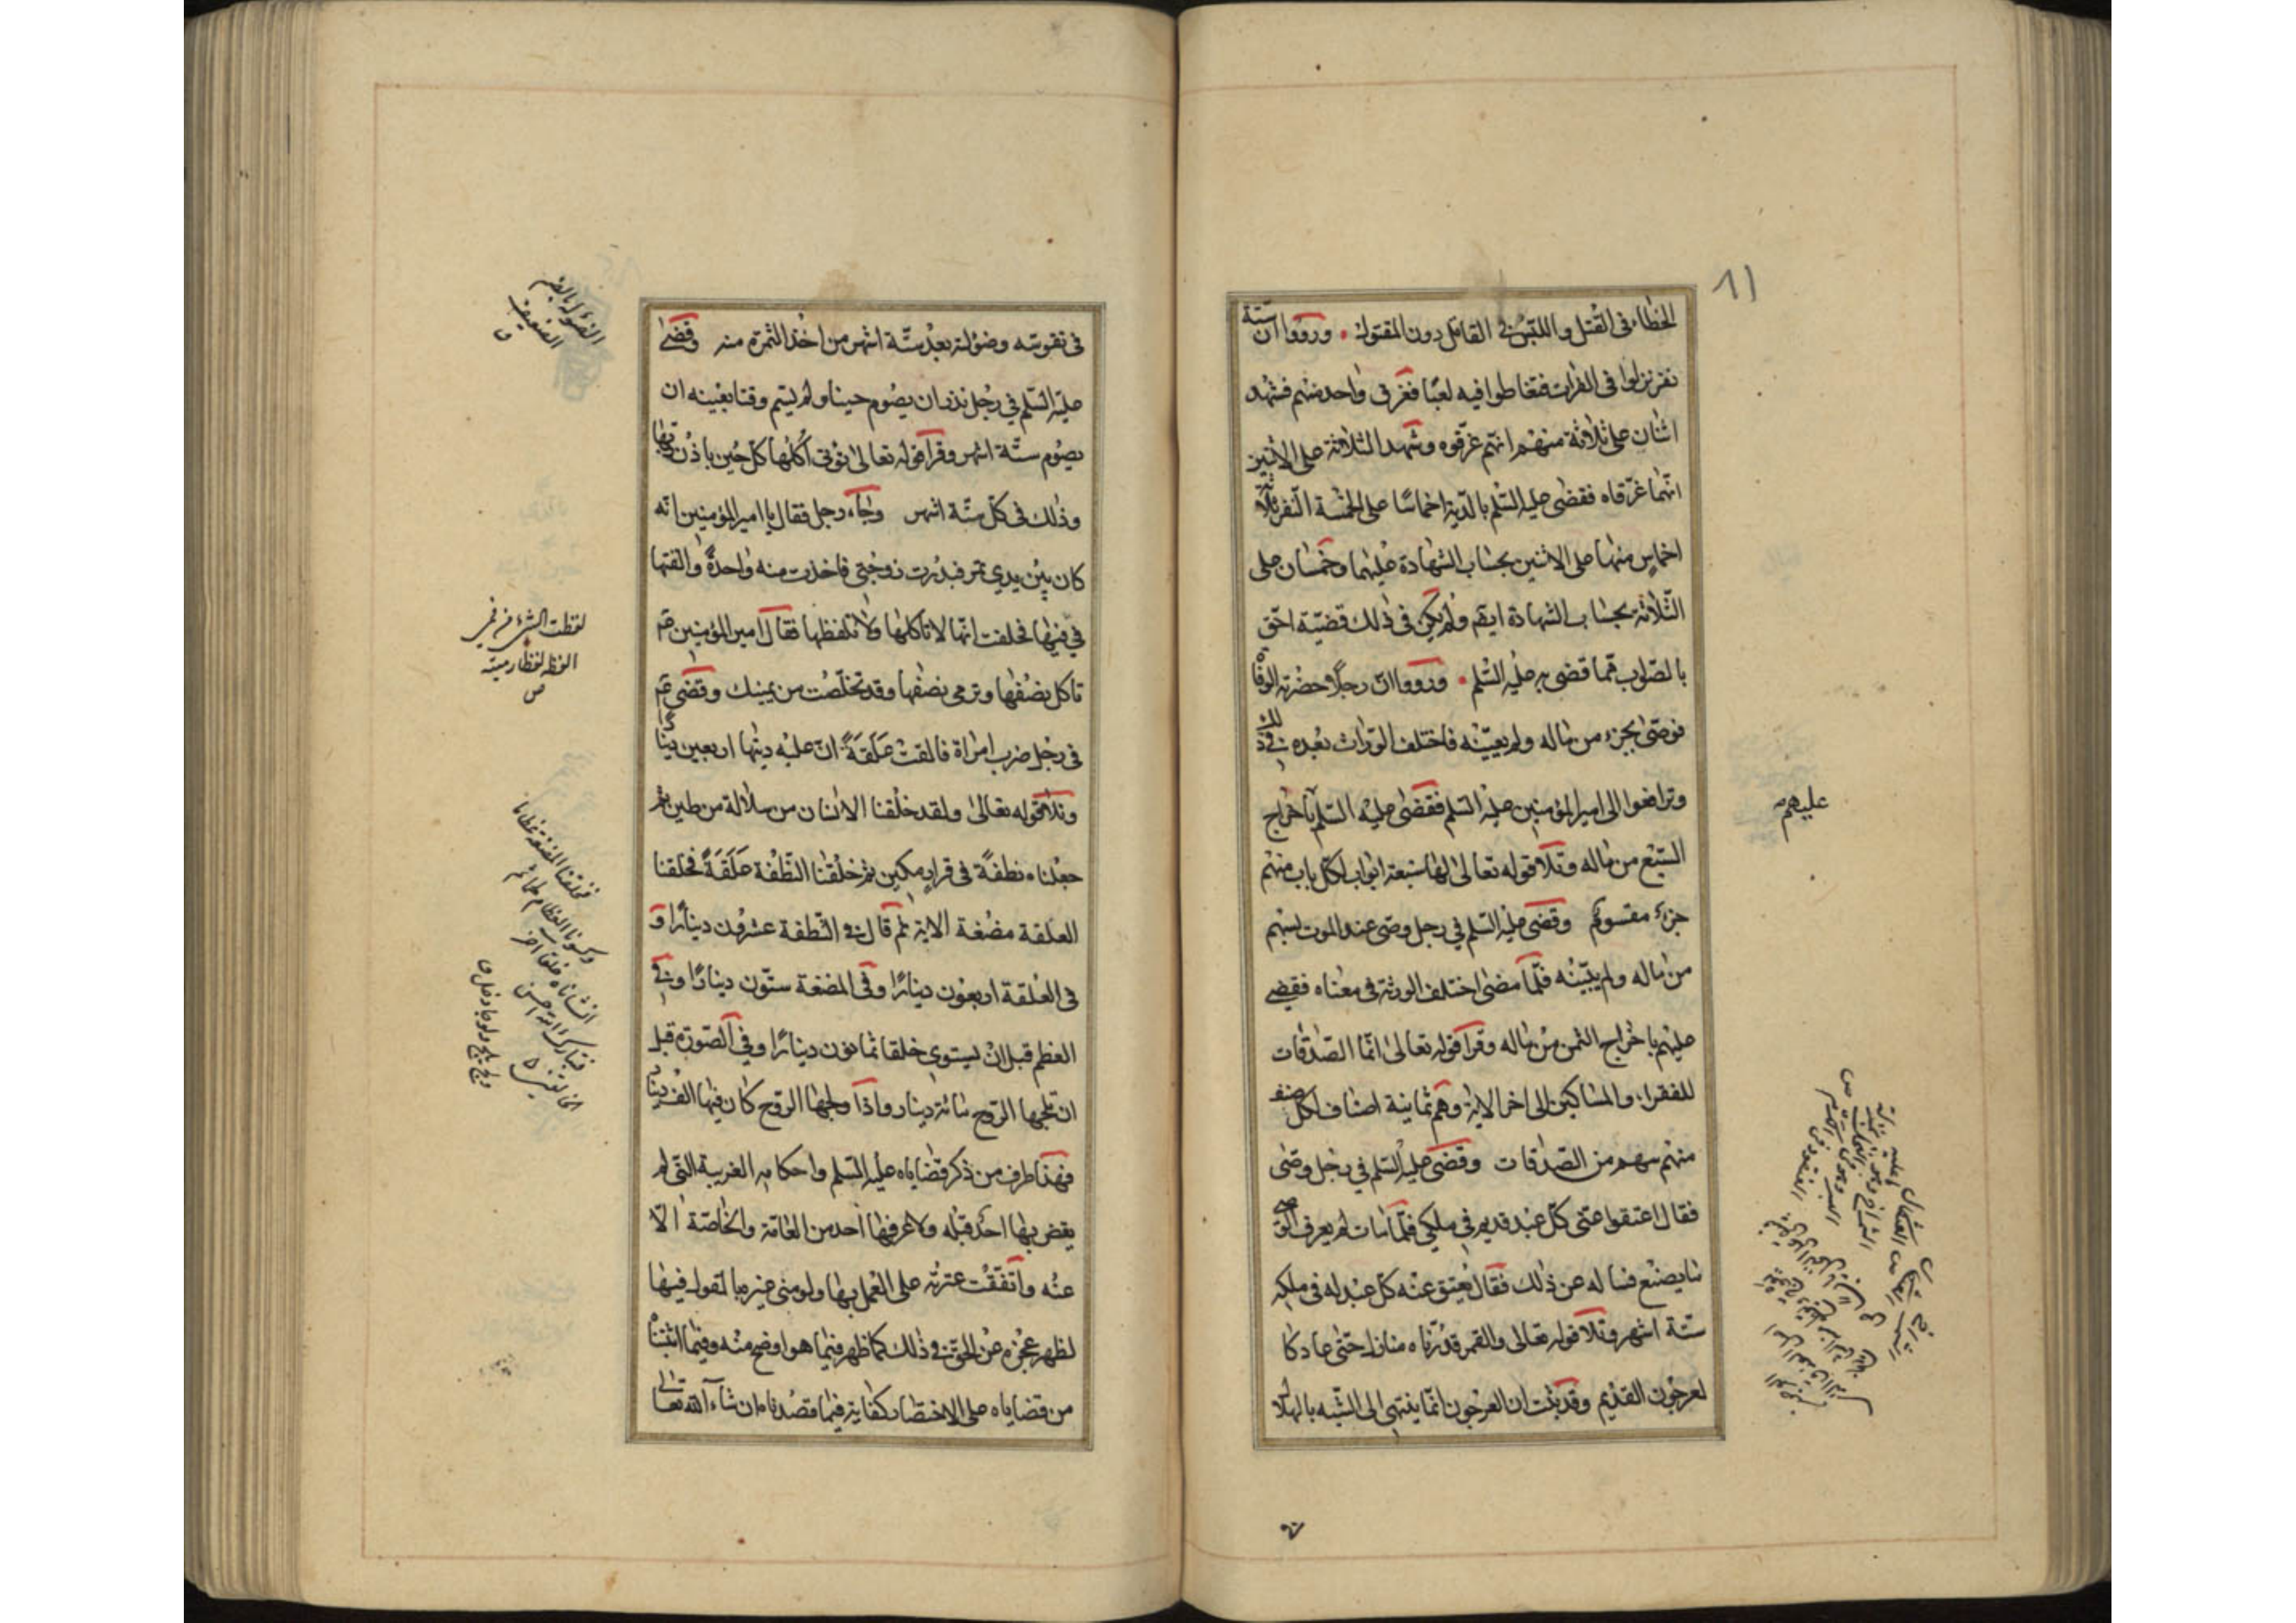 ٨١
الخطاء فى القتل و اللتبس فى القاتل دون المقتول • ورووا ان ستة
نفر نزلوا فى الفرات فتغاطوا فيه لعبًا فغرق واحد منهم فشهد
اثنان على ثلاثة منهم انهم غرّقوه وشهد الثلاثة على الاثنين
انّهما غرّقاه فقضى عليه السّلم بالدّية اخماسًا على الخمسة النّفر ثلاثة
اخماسٍ منها على الاثنين بحساب الشهادة عليهما وخمسان على
الثّلاثة بحساب الشهادة ايضم ولم يكن فى ذلك قضيّة احقّ
بالصّواب ممّا قضى به عليه السّلم • ورووا انّ رجلًا حضرته الوفاة
فوصّى بجزء من ماله ولم يعيّنه فاختلف الورّاث بعده فى ذلك
وترافعوا الى امير المؤمنين عليه السّلم فقضى عليه السّلم باخراج
عليهم
السّبع من ماله وتلا قوله تعالى لها سبعة ابواب لكلّ باب منهم
جزءٌ مقسوم وقضى عليه السّلم فى رجل وصّى عند الموت بسهم
من ماله ولم يبيّنه فلمّا مضى اختلف الورثة فى معناه فقضى
عليهم باخراج الثمن من ماله وقرا قوله تعالى انّما الصّدقات
للفقراء والمساكين الى اخر الاية وهم ثمانية اصناف لكلّ صنف
منهم سهم من الصّدقات وقضى عليه السّلم فى رجل وصّى
فقال اعتقوا عنّى كلّ عبد قديم فى ملكى فلمّا مات لم يعرف الوصى
ما يصنع فساله عن ذلك فقال يُعتق عنه كلّ عبد له فى ملكه
ستّة اشهر وتلا قوله تعالى والقمر قدّرناه منازل حتّى عاد كا
لعرجون القديم وقد ثبت ان العرجون انّما ينتهى الى الشّبه بالهلال
فى تقوّسه وضؤلته بعد ستّة اشهر من اخذ الثمرة منه وقضى
الضؤل بالضم
الضعيف
عليه السّلم فى رجل نذر ان يصوم حينا ولم يسمّ وقتا بعينه ان
يصوم ستّة اشهر وقرا قوله تعالى تؤتى اكلها كلّ حين باذن ربّها
وذلك فى كلّ ستّة اشهر وجاءه رجل فقال يا امير المؤمنين انّه
كان بين يدي تمر فبدرت زوجتى فاخذت منه واحدةً والقتها
فى فيها فحلفت انّها لا تاكلها ولا تلفظها فقال امير المؤمنين عم
لفظت الشىء من فمى
الفظه لفظا رميته
ص
تاكل نصفها وترمى نصفها وقد تخلّصت من يمينك وقضى عم
فى رجل ضرب امراة فالقت عَلَقَةً انّ عليه ديتها اربعين دينارا
وتلا قوله تعالى ولقد خلقنا الانسان من سلالة من طين ثم
جعلناه نطفةً فى قرارٍ مكين ثم خلقنا النّطفة عَلَقَةً فخلقنا
فخلقنا المضغة عظاما
وكسونا العظام لحما ثم
انشاناه خلقا اخر
فتبارك الله احسن
الخالقين
العلقة مضغة الاية ثم قال فى النّطفة عشرون دينارًا و
فى العلقة اربعون دينارًا وفى المضغة ستّون دينارًا وفى
العظم قبل ان يستوى خلقا ثمانون دينارًا وفى الصّورة قبل
ان تلجها الرّوح مائة دينار واذا ولجها الروح كان فيها الف دينار
فهذا طرف من ذكر قضاياه عليه السّلم واحكامه الغريبة التّى لم
يقض بها احدٌ قبله ولا عرفها احد من العامّة والخاصّة الّا
عنه واتّفقت عترته على العمل بها ولو منى غيره بالقول فيها
لظهر عجزه عن الحقّ فى ذلك كما ظهر فيما هو اوضح منه وفيما اثبتناه
من قضاياه على الاختصار كفاية فيما قصدناه ان شاء الله تعالى